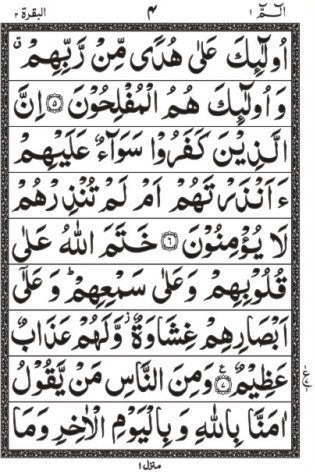 الٓمّٓ ١ ٤ البقرة ٢
اُولٰٓئِكَ عَلٰى هُدًى مِّنْ رَّبِّهِمْ ۗ
وَاُولٰٓئِكَ هُمُ الْمُفْلِحُوْنَ ۝٥ اِنَّ
الَّذِيْنَ كَفَرُوْا سَوَآءٌ عَلَيْهِمْ
ءَاَنْذَرْتَهُمْ اَمْ لَمْ تُنْذِرْهُمْ
لَا يُؤْمِنُوْنَ ۝٦ خَتَمَ اللّٰهُ عَلٰى
قُلُوْبِهِمْ وَعَلٰى سَمْعِهِمْ ؕ وَعَلٰٓى
اَبْصَارِهِمْ غِشَاوَةٌ ؗ وَّلَهُمْ عَذَابٌ
عَظِيْمٌ ۝٧ وَمِنَ النَّاسِ مَنْ يَّقُوْلُ
اٰمَنَّا بِاللّٰهِ وَبِالْيَوْمِ الْاٰخِرِ وَمَا
منزل ١